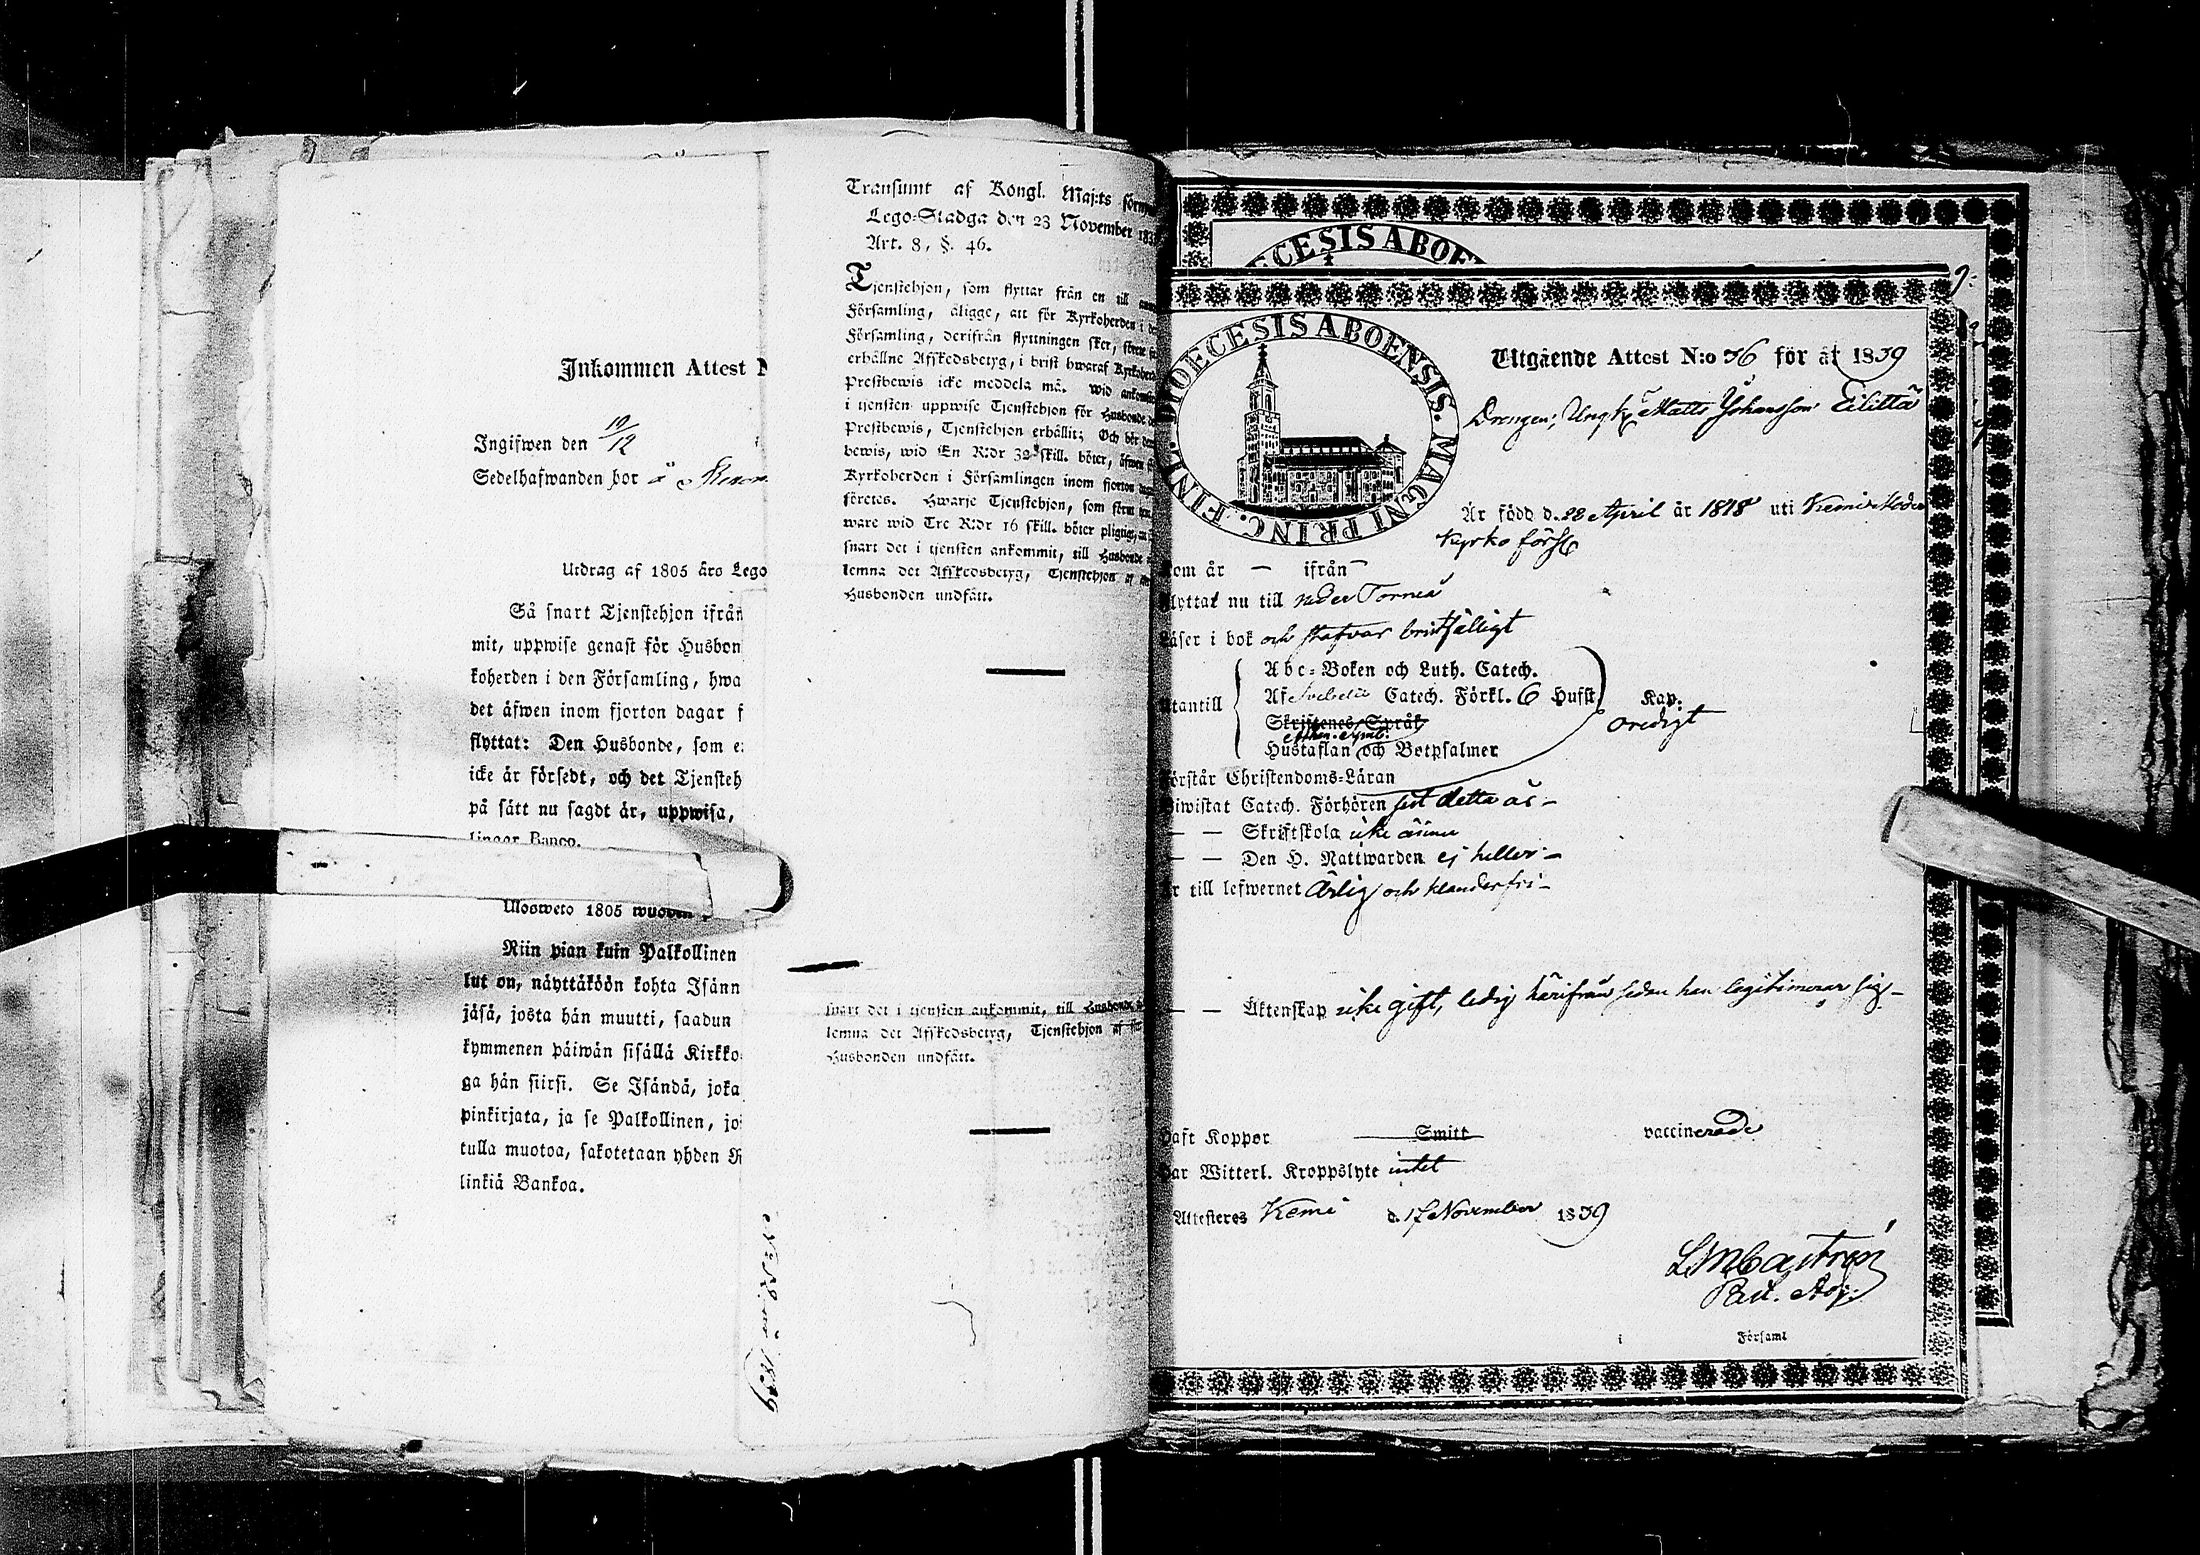 Inkommen Attest
Ingifwen den 19/12
Sedelhafwanden bor å
Utdrag af 1805 års Lego
Så snart Tjenstehjon ifrån
mit, uppwise genast för Husbon
koherden i den Församling, hwa
det äfwen inom fjorton dagar f
flyttat: Den Husbonde, som e
icke är försedt, och det Tjensteh
på sätt nu sagdt är, uppwisa,
lingar Banco.
Ulosweto 1805 wuoden
Niin pian kuin Palkollinen
lut on, näyttäköön kohta Isänn
jäsä, josta hän muutti, saadun
kymmenen päiwän sisällä Kirkko
ga hän siirsi. Se Isändä, joka
pinkirjata, ja se Palkollinen, jo
tulla muotoa, sakotetaan yhden R
linkiä Bankoa.
Transumt af Kongl. Maj:ts förny
Lego-Stadga den 23 November 183
Art. 8, §. 46.
Tjenstehjon, som flyttar från en till
Församling, åligge, att för Kyrkoherden i
Församling, derifrån flyttningen sker,
erhållne Afskedsbetyg, i brist hwaraf Kyrkoherd
Prestbewis icke meddela må. Wid
i tjensten uppwise Tjenstehjon för Husbonde
Prestbewis, Tjenstehjon erhållit; Och bör
bewis, wid En R:dr 32 skill. böter, äfwen
Kyrkoherden i Församlingen inom fjorton
företes. Hwarje Tjenstehjon, som
ware wid Tre R:dr 16 skill. böter pligtig,
snart det i tjensten ankommit, till Husbonde
lemna det Afskedsbetyg, Tjenstehjon af
Husbonden undfått.
snart det i tjensten ankommit, till Husbonde
lemna det Afskedsbetyg, Tjenstehjon af
Husbonden undfått.
ECESIS ABOE
9.
DIOECESIS ABOENSIS. MAGNI PRINC. FINL.
Utgående Attest N:o 36 för år 1839
Drengen, Ungk. Matts Johansson Eilittä
Är född d. 28 April år 1818 uti Kemi Moder
kyrko förs
kom år — ifrån —
flyttat nu till Neder Torneå
Läser i bok och stafvar bristfälligt
Utantill
Abc-Boken och Luth. Catech.
Af Svebelii Catech. Förkl. 6 Hufst.
Kap:
Skriftenes Språk
Athan. symb.
oredigt
Hustaflan och Botpsalmer
Förstår Christendoms-Läran
Biwistat Catech. Förhören sist detta år —
— — Skriftskola icke ännu
— — Den H. Nattwarden ej heller —
Är till lefwernet Ärlig och klanderfri —
— — Äktenskap icke gift, ledig härifrån sedan han legitimerar sig —
Haft Koppor
Smitt
vaccinerade
Har Witterl. Kroppslyte intet
Attesteras Kemi d. 17 November 1839
L M Castrén
Past. Adj.
i Församl